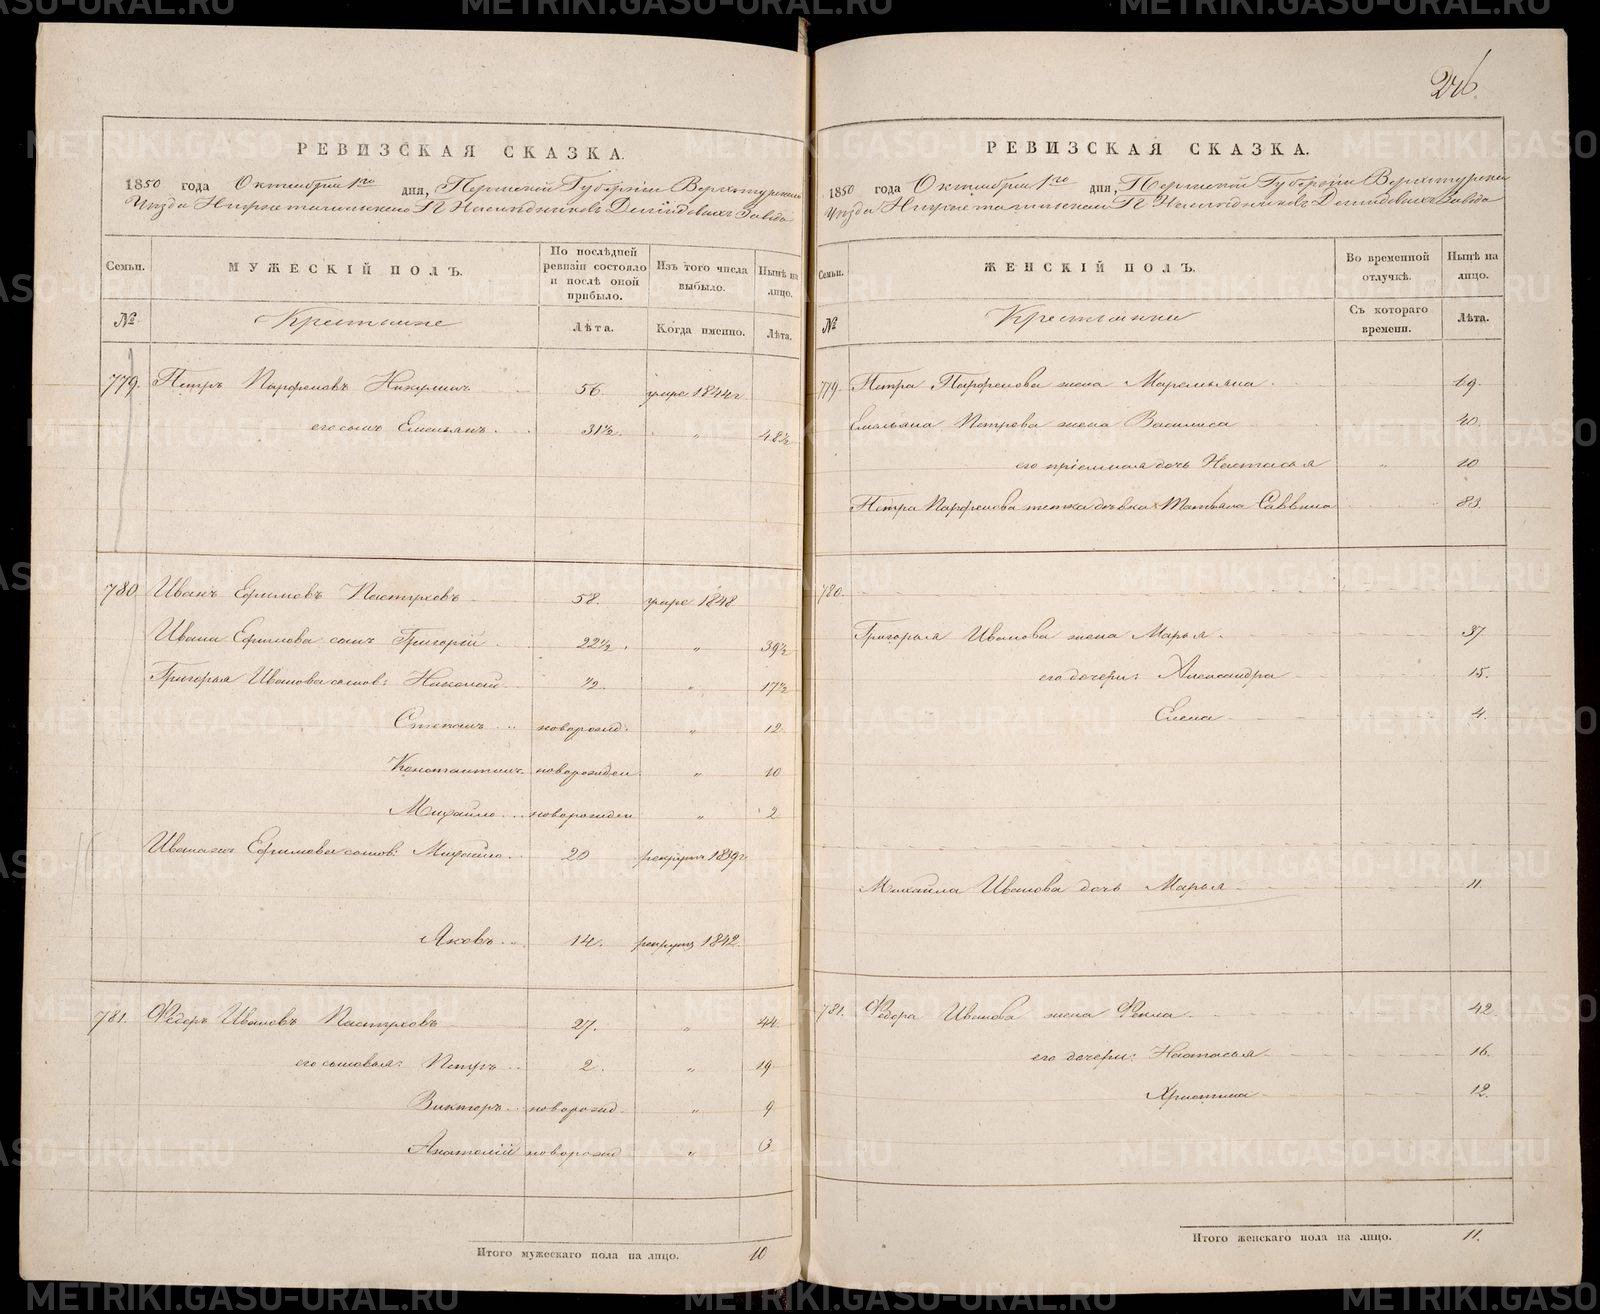 246.
РЕВИЗСКАЯ СКАЗКА.
1850 года Октября 1го дня, Пермской Губерніи Верхотурскаго
Уѣзда Нижнетагильскаго П. Наслѣдниковъ Демидовыхъ Завода
Семьи. МУЖЕСКІЙ ПОЛЪ. По послѣдней ревизіи состояло и послѣ оной прибыло. Изъ того числа выбыло. Нынѣ на лицо.
№ Крестьяне Лѣта. Когда именно. Лѣта.
779. Петръ Парфеновъ 56. умре 1844г
его сынъ Емельянъ 31½. " 48½
780 Иванъ Ефимовъ Пастуховъ 58. умре 1848
Ивана Ефимова сынъ Григорій 22½. " 39½
Григорья Иванова сынов: Николай ½ " 17½
Степанъ новорожд. " 12
Константинъ новорожден " 10
Михайло новорожден " 2
Ивана Ефимова сынов: Михайло 20 рекрут 1839г
Яковъ 14. рекрут 1842
781. Федоръ Ивановъ Пастуховъ 27. " 44
его сыновья: Петръ 2. " 19
Викторъ новорожд. " 9
Анатолій новорожд " 3
Итого мужескаго пола на лицо. 10
РЕВИЗСКАЯ СКАЗКА.
1850 года Октября 1го дня, Пермской Губерніи Верхотурскаго
Уѣзда Нижнетагильскаго П. Наслѣдниковъ Демидовыхъ Завода
Семьи. ЖЕНСКІЙ ПОЛЪ. Во временной отлучкѣ. Нынѣ на лицо.
№ Крестьянки Съ котораго времени. Лѣта.
779. Петра Парфенова жена Маремьяна 69.
Емельяна Петрова жена Василиса 40.
его пріемная дочь Настасья " 10
Петра Парфенова тетка дѣвка Татьяна Саввина 83.
780.
Григорья Иванова жена Марья 37.
его дочери: Александра 15.
Елена 4.
Михайла Иванова дочь Марья 11.
781. Федора Иванова жена Фекла 42.
его дочери: Настасья 16.
Христина 12.
Итого женскаго пола на лицо. 11.
METRIKI.GASO-URAL.RU